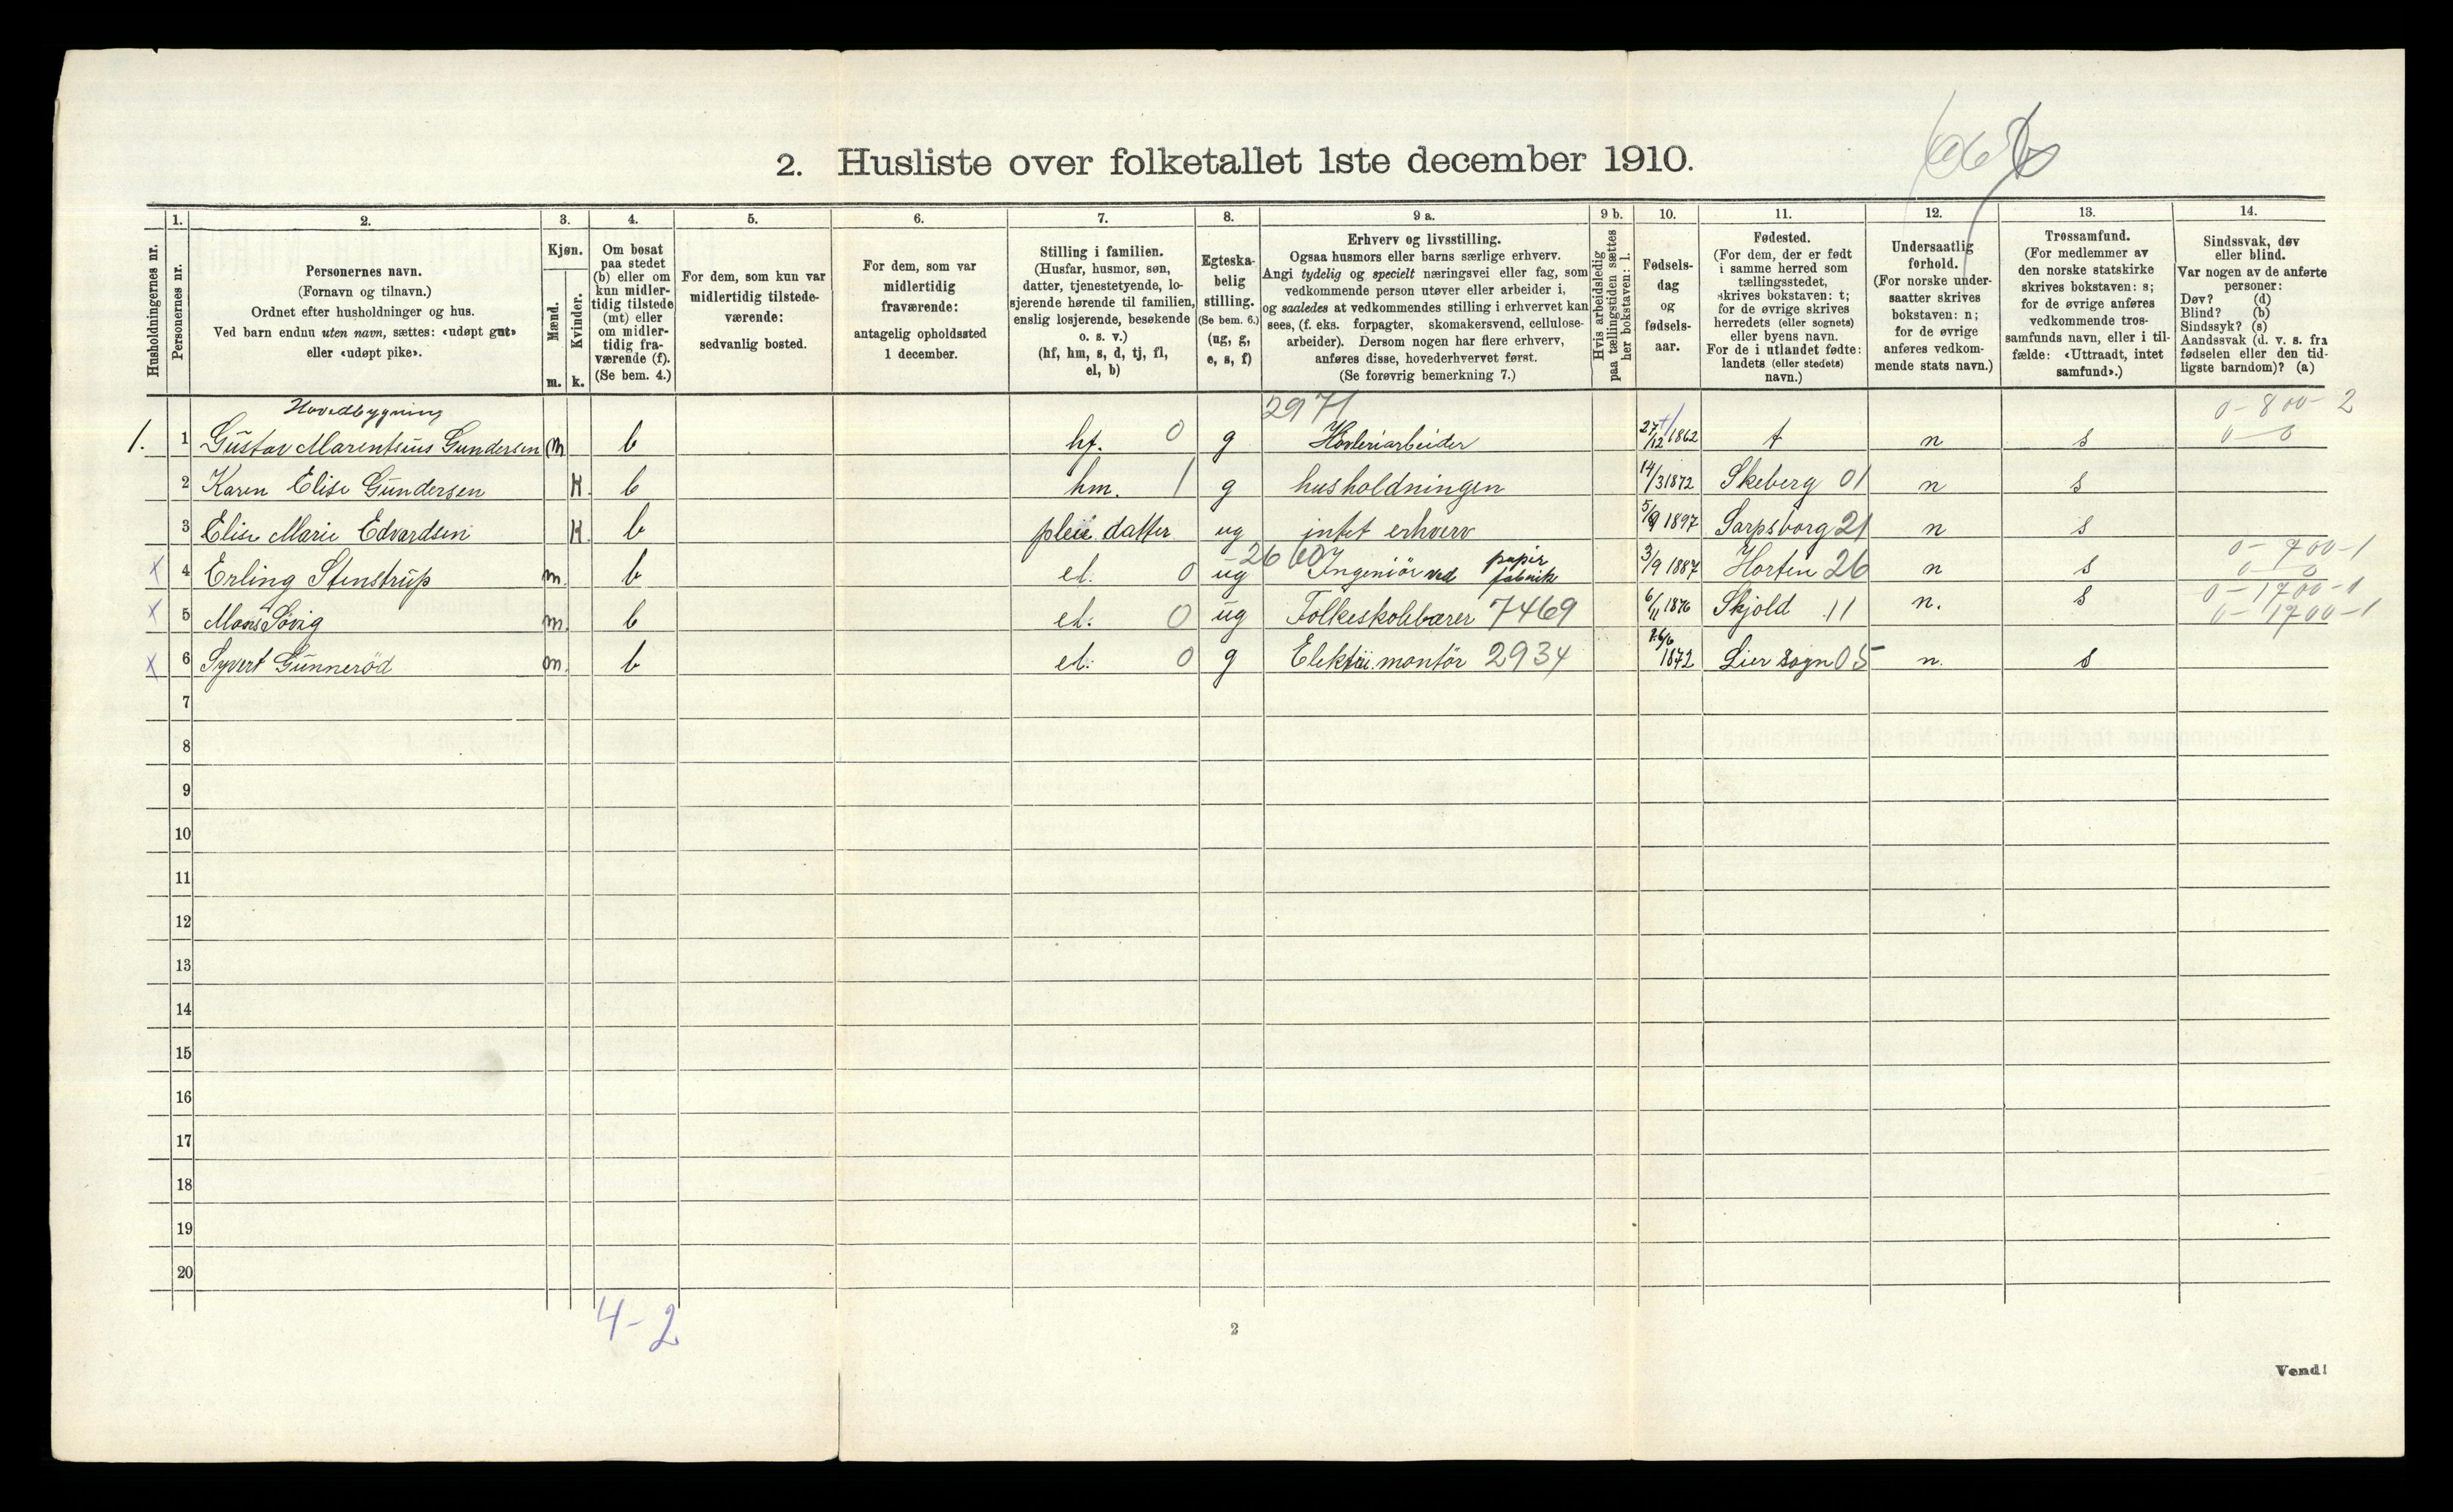 2. Husliste over folketallet 1ste december 1910.
Husholdningernes nr.
1.
Personernes nr.
2.
Personernes navn.
(Fornavn og tilnavn.)
Ordnet efter husholdninger og hus.
Ved barn endnu uten navn, sættes: «udøpt gut»
eller «udøpt pike».
3.
Kjøn.
Mænd.
Kvinder.
m. k.
4.
Om bosat
paa stedet
(b) eller om
kun midler-
tidig tilstede
(mt) eller
om midler-
tidig fra-
værende (f).
(Se bem. 4.)
5.
For dem, som kun var
midlertidig tilstede-
værende:
sedvanlig bosted.
6.
For dem, som var
midlertidig
fraværende:
antagelig opholdssted
1 december.
7.
Stilling i familien.
(Husfar, husmor, søn,
datter, tjenestetyende, lo-
sjerende hørende til familien,
enslig losjerende, besøkende
o. s. v.)
(hf, hm, s, d, tj, fl,
el, b)
8.
Egteska-
belig
stilling.
(Se bem. 6.)
(ug, g,
e, s, f)
9 a.
Erhverv og livsstilling.
Ogsaa husmors eller barns særlige erhverv.
Angi tydelig og specielt næringsvei eller fag, som
vedkommende person utøver eller arbeider i,
og saaledes at vedkommendes stilling i erhvervet kan
sees, (f. eks. forpagter, skomakersvend, cellulose-
arbeider). Dersom nogen har flere erhverv,
anføres disse, hovederhvervet først.
(Se forøvrig bemerkning 7.)
9 b.
Hvis arbeidsledig
paa tællingstiden sættes
her bokstaven: l.
10.
Fødsels-
dag
og
fødsels-
aar.
11.
Fødested.
(For dem, der er født
i samme herred som
tællingsstedet,
skrives bokstaven: t;
for de øvrige skrives
herredets (eller sognets)
eller byens navn.
For de i utlandet fødte:
landets (eller stedets)
navn.)
12.
Undersaatlig
forhold.
(For norske under-
saatter skrives
bokstaven: n;
for de øvrige
anføres vedkom-
mende stats navn.)
13.
Trossamfund.
(For medlemmer av
den norske statskirke
skrives bokstaven: s;
for de øvrige anføres
vedkommende tros-
samfunds navn, eller i til-
fælde: «Uttraadt, intet
samfund».)
14.
Sindssvak, døv
eller blind.
Var nogen av de anførte
personer:
Døv? (d)
Blind? (b)
Sindssyk? (s)
Aandssvak (d. v. s. fra
fødselen eller den tid-
ligste barndom)? (a)
Hovedbygning 2971 0-800-2
1. 1 Gustav Marentsius Gundersen m b hf. 0 g Høvleriarbeider 27/12 1862 t n s 0-0
2 Karen Elise Gundersen K. b hm. 1 g husholdningen 14/3 1872 Skeberg 01 n s
3 Elise Marie Edvardsen K. b pleie datter ug intet erhverv 5/9 1897 Sarpsborg 21 n s
x 4 Erling Stenstrup m. b el. 0 ug 2600 Ingeniør ved papir fabrik 3/9 1887 Horten 26 n s 0-700-1 0-0
x 5 Mons Søvig m. b el: 0 ug Folkeskolelærer 7469 6/11 1876 Skjold 11 n. s 0-1700-1 0-1700-1
x 6 Syvert Gunnerød m. b el: 0 g Elektri. montør 2934 26/6 1872 Lier sogn 05 n. s
7
8
9
10
11
12
13
14
15
16
17
18
19
20
4-2
2
Vend!